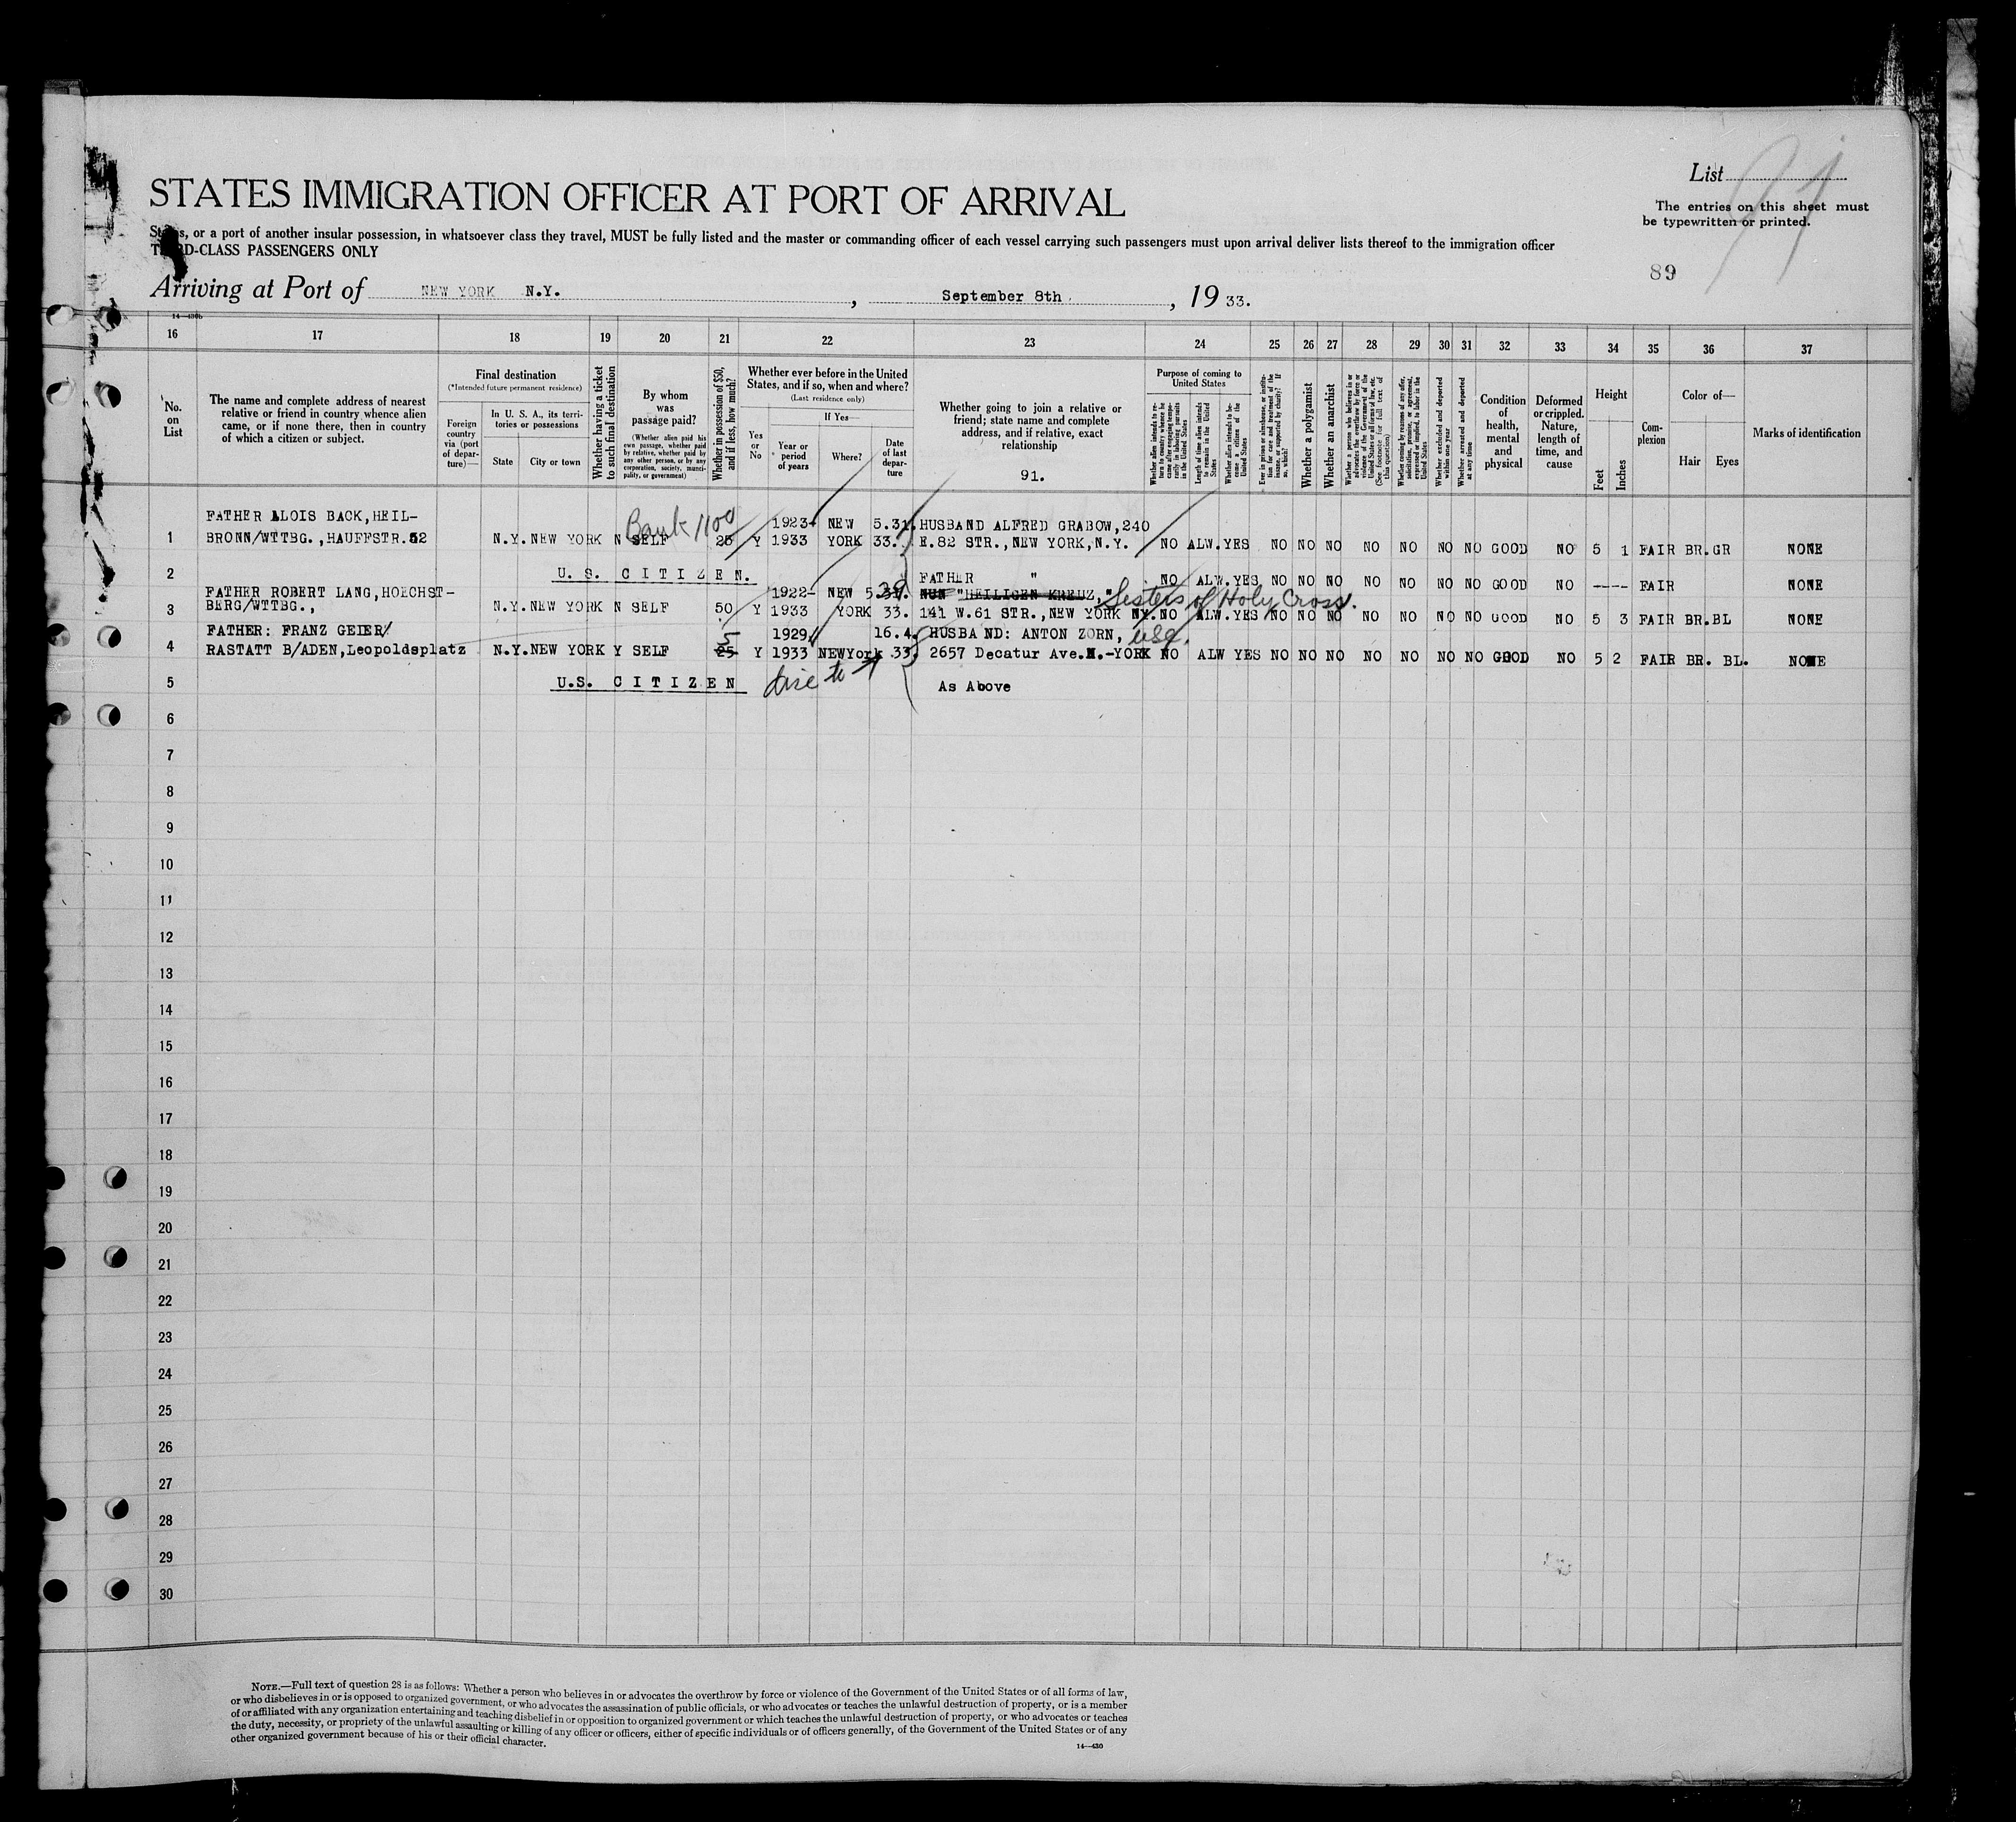 List
91
The entries on this sheet must
be typewritten or printed.
89
STATES IMMIGRATION OFFICER AT PORT OF ARRIVAL
States, or a port of another insular possession, in whatsoever class they travel, MUST be fully listed and the master or commanding officer of each vessel carrying such passengers must upon arrival deliver lists thereof to the immigration officer
THIRD-CLASS PASSENGERS ONLY
Arriving at Port of NEW YORK N.Y. , September 8th , 19 33.
14—430b
16 17 18 19 20 21 22 23 24 25 26 27 28 29 30 31 32 33 34 35 36 37
No.
on
List
The name and complete address of nearest
relative or friend in country whence alien
came, or if none there, then in country
of which a citizen or subject.
Final destination
(*Intended future permanent residence)
Foreign
country
via (port
of depar-
ture)—
In U. S. A., its terri-
tories or possessions
State
City or town
Whether having a ticket
to such final destination
By whom
was
passage paid?
(Whether alien paid his
own passage, whether paid
by relative, whether paid by
any other person, or by any
corporation, society, munici-
pality, or government)
Whether in possession of $50,
and if less, how much?
Whether ever before in the United
States, and if so, when and where?
(Last residence only)
Yes
or
No
If Yes—
Year or
period
of years
Where?
Date
of last
depar-
ture
Whether going to join a relative or
friend; state name and complete
address, and if relative, exact
relationship
91.
Purpose of coming to
United States
Whether alien intends to re-
turn to country whence he
came after engaging tempo-
rarily in laboring pursuits
in the United States
Length of time alien intends
to remain in the United
States
Whether alien intends to be-
come a citizen of the
United States
Ever in prison or almshouse, or institu-
tion for care and treatment of the
insane, or supported by charity? If
so, which?
Whether a polygamist
Whether an anarchist
Whether a person who believes in or
advocates the overthrow by force or
violence of the Government of the
United States or all forms of law, etc.
(See footnote for full text of
this question)
Whether coming by reasons of any offer,
solicitation, promise, or agreement,
expressed or implied, to labor in the
United States
Whether excluded and deported
within one year
Whether arrested and deported
at any time
Condition
of
health,
mental
and
physical
Deformed
or crippled.
Nature,
length of
time, and
cause
Height
Feet
Inches
Com-
plexion
Color of—
Hair
Eyes
Marks of identification
FATHER ALOIS BACK, HEIL- Bank 1100 1923- NEW 5.31. HUSBAND ALFRED GRABOW,240
1 BRONN/WTTBG.,HAUFFSTR.52 N.Y. NEW YORK N SELF 25 Y 1933 YORK 33. E.82 STR.,NEW YORK,N.Y. NO ALW. YES NO NO NO NO NO NO NO GOOD NO 5 1 FAIR BR. GR NONE
2 U. S. CITIZEN. FATHER " NO ALW. YES NO NO NO NO NO NO NO GOOD NO ---- FAIR NONE
FATHER ROBERT LANG,HOECHST- 1922- NEW 5. NUN "HEILIGEN KREUZ," Sisters of Holy Cross.
3 BERG/WTTBG., N.Y. NEW YORK N SELF 50 Y 1933 YORK 33. 141 W.61 STR.,NEW YORK NY. NO ALW. YES NO NO NO NO NO NO NO GOOD NO 5 3 FAIR BR. BL NONE
FATHER: FRANZ GEIER/ 5 1929/ 16.4. HUSBAND: ANTON ZORN, USC.
4 RASTATT B/ADEN,Leopoldsplatz N.Y. NEW YORK Y SELF 25 Y 1933 NEWYork 33. 2657 Decatur Ave.N.-YORK NO ALW YES NO NO NO NO NO NO NO GOOD NO 5 2 FAIR BR. BL. NONE
5 U.S. CITIZEN As Above
6
7
8
9
10
11
12
13
14
15
16
17
18
19
20
21
22
23
24
25
26
27
28
29
30
NOTE.—Full text of question 28 is as follows: Whether a person who believes in or advocates the overthrow by force or violence of the Government of the United States or of all forms of law,
or who disbelieves in or is opposed to organized government, or who advocates the assassination of public officials, or who advocates or teaches the unlawful destruction of property, or is a member
of or affiliated with any organization entertaining and teaching disbelief in or opposition to organized government or which teaches the unlawful destruction of property, or who advocates or teaches
the duty, necessity, or propriety of the unlawful assaulting or killing of any officer or officers, either of specific individuals or of officers generally, of the Government of the United States or of any
other organized government because of his or their official character.
14—430